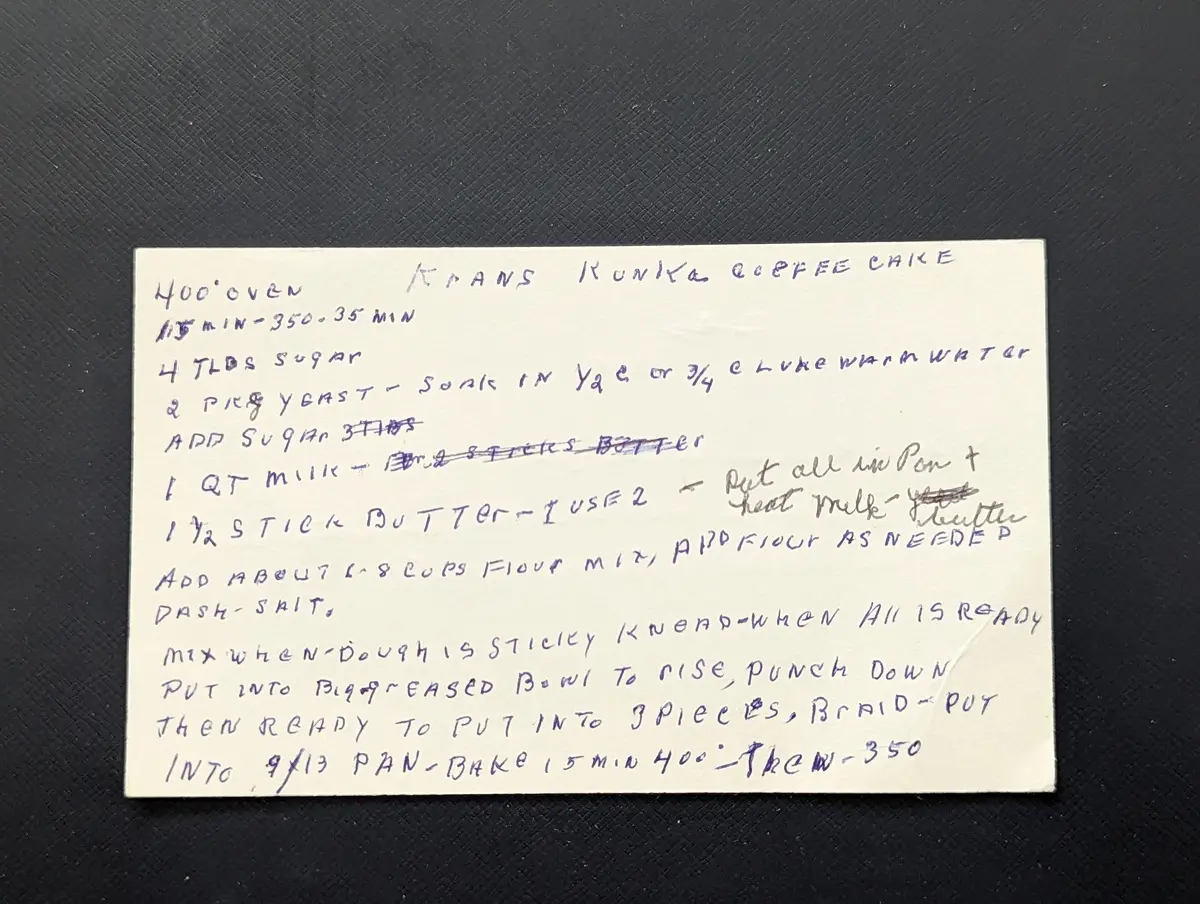 KRANS KUNKA COFFEE CAKE
400° OVEN
15 MIN - 350 - 35 MIN
4 TLBS SUGAR
2 PKG YEAST - SOAK IN 1/2 C or 3/4 C LUKEWARM WATER
ADD SUGAR 3 TLBS
1 QT MILK - or 2 STICKS BUTTER
1 1/2 STICK BUTTER - I USE 2 - Put all in Pan +
heat Milk - butter
ADD ABOUT 6-8 CUPS FLOUR MIX, ADD FLOUR AS NEEDED
DASH - SALT.
MIX WHEN - DOUGH IS STICKY KNEAD - WHEN All IS READY
PUT INTO BIG GREASED BOWL TO RISE, PUNCH DOWN
THEN READY TO PUT INTO 3 PIECES, BRAID - PUT
INTO 9/13 PAN - BAKE 15 MIN 400° - THEN - 350